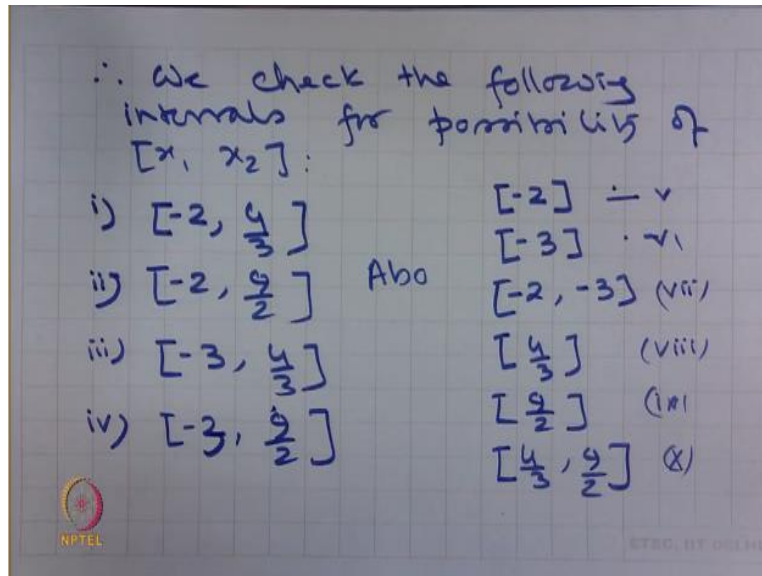 ∴ We check the following
intervals for possibility of
[x, x2]:
i) [-2, 4/3]
ii) [-2, 9/2]
iii) [-3, 4/3]
iv) [-3, 9/2]
Also
[-2] — v
[-3] · vi
[-2, -3] (vii)
[4/3] (viii)
[9/2] (ix)
[4/3, 9/2] (x)
NPTEL
ETSC, IIT DELHI